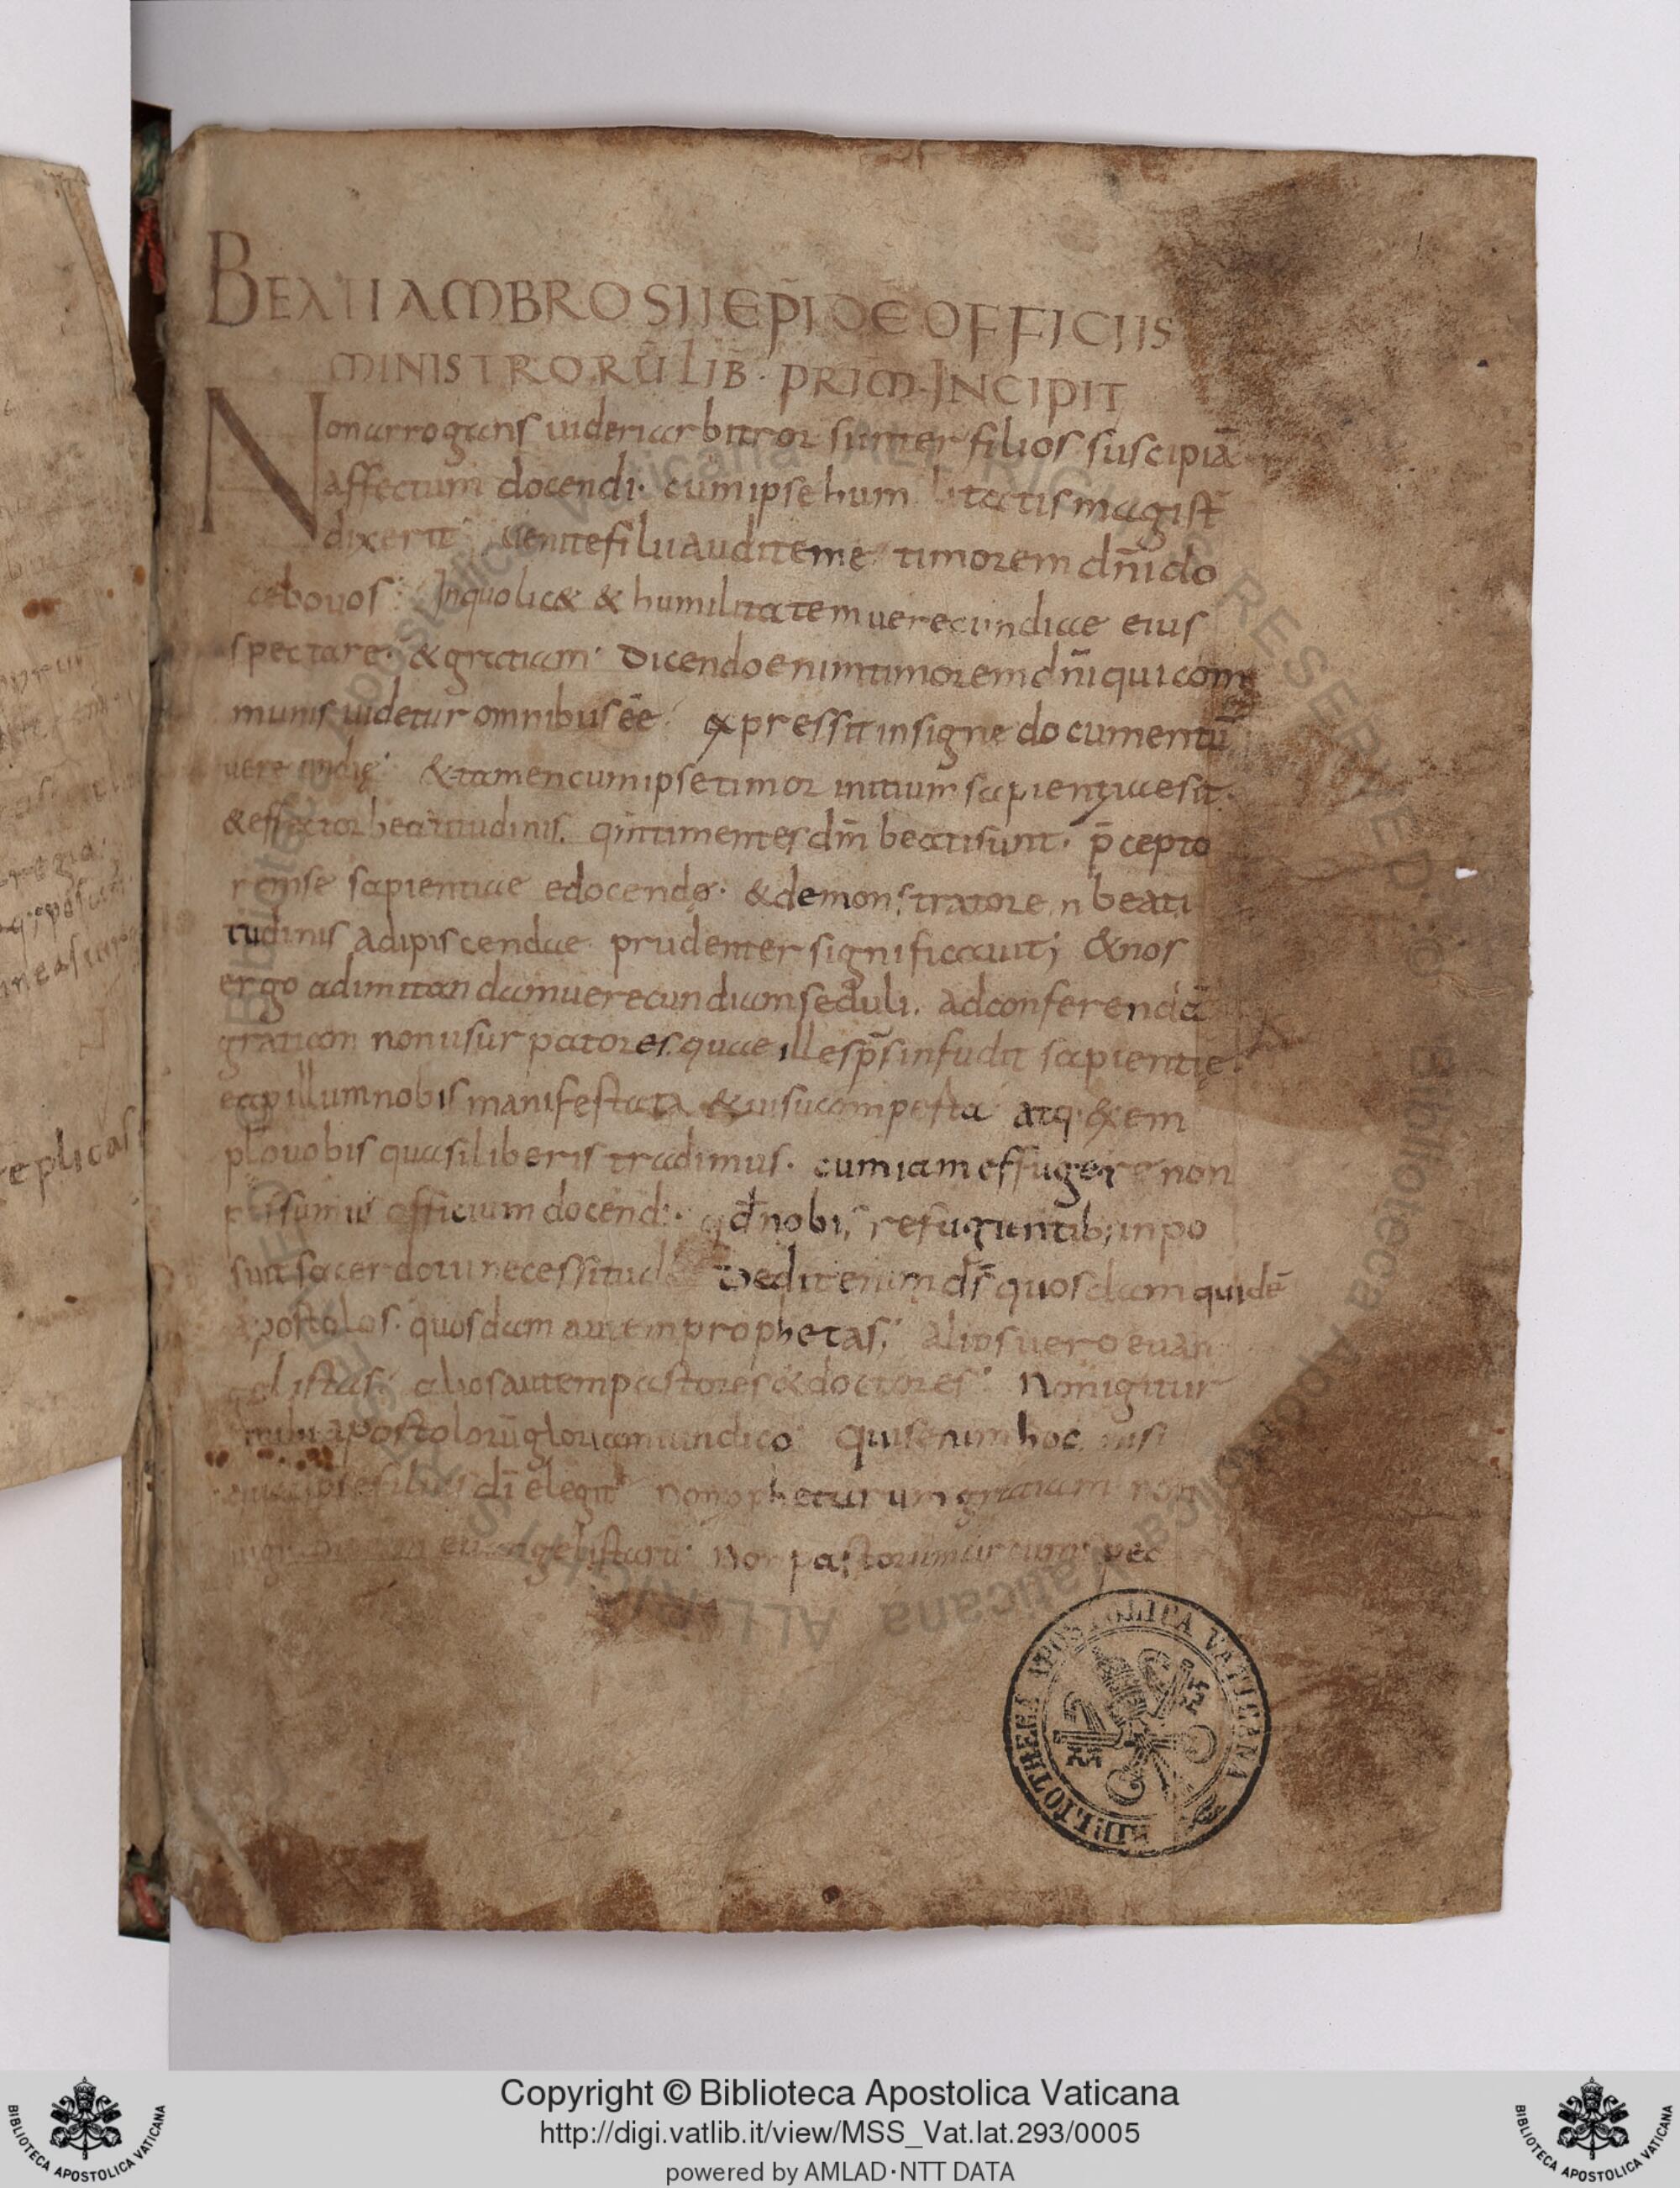 BEATI AMBROSII EP̄I DE OFFICIIS
MINISTRORŪ LIB̄. PRIM̄. INCIPIT
Non arrogans uideri arbitror si inter filios suscipiā
affectum docendi. cum ipse humilitatis magist̄
dixerit uenite filii audite me timorem dn̄i do
cebo uos. In quo lic& & humilitatem uerecundiae eius
spectare. & gratiam. Dicendo enim timorem dn̄i qui com
munis uidetur omnibus ēe. expressit insigne documentū
uerecundię. & tamen cum ipse timor initium sapientiae sit.
& effector beatitudinis. qm̄ timentes dm̄ beati sunt. p̄cepto
rem se sapientiae edocendę. & demonstratorem beati
tudinis adipiscendae prudenter significauit; & nos
ergo ad imitandam uerecundiam seduli. ad conferendā
gratiam non usurpatores. quae ille sp̄s infudit sapientię.
ea p illum nobis manifestata & uisu comperta atq. exem
plo uobis quasi liberis tradimus. cum iam effugere non
possumus officium docendi. qđ nobis refugientib; inpo
suit sacerdotii necessitudo Dedit enim dš quosdam quidē
apostolos. quosdam autem prophetas; alios uero euan
gelistas; alios autem pastores & doctores. Non igitur
mihi apostolorū gloriam uindico. Quis enim hoc nisi
quos ipse filius dī elegit non prophetarum gratiam non
euangelistarū. non pastorum circum spec
BIBLIOTHECA APOSTOLICA VATICANA
eplicas
© Biblioteca Apostolica Vaticana ALL RIGHTS RESERVED
Copyright © Biblioteca Apostolica Vaticana
http://digi.vatlib.it/view/MSS_Vat.lat.293/0005
powered by AMLAD·NTT DATA
BIBLIOTECA APOSTOLICA VATICANA
BIBLIOTECA APOSTOLICA VATICANA